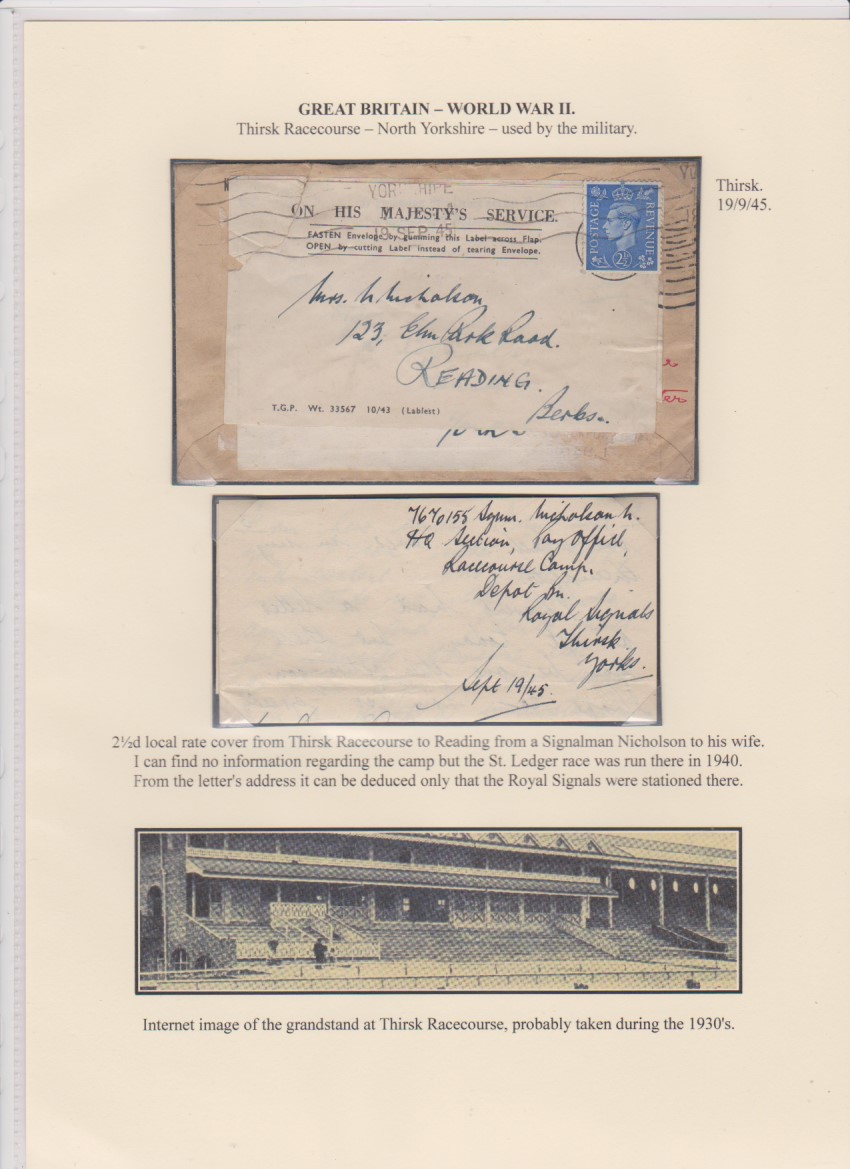 GREAT BRITAIN – WORLD WAR II.
Thirsk Racecourse – North Yorkshire – used by the military.
Thirsk.
19/9/45.
19 SEP 45
POSTAGE REVENUE
2½D
ON HIS MAJESTY'S SERVICE.
FASTEN Envelope by gumming this Label across Flap.
OPEN by cutting Label instead of tearing Envelope.
Mrs. N. Nicholson
123, Elm Park Road.
READING.
Berks.
T.G.P. Wt. 33567 10/43 (Lablest)
7670155 Sgmn. Nicholson N.
HQ Section, Pay Office,
Racecourse Camp,
Depot Bn.
Royal Signals
Thirsk
Yorks.
Sept 19/45.
2½d local rate cover from Thirsk Racecourse to Reading from a Signalman Nicholson to his wife.
I can find no information regarding the camp but the St. Ledger race was run there in 1940.
From the letter's address it can be deduced only that the Royal Signals were stationed there.
Internet image of the grandstand at Thirsk Racecourse, probably taken during the 1930's.